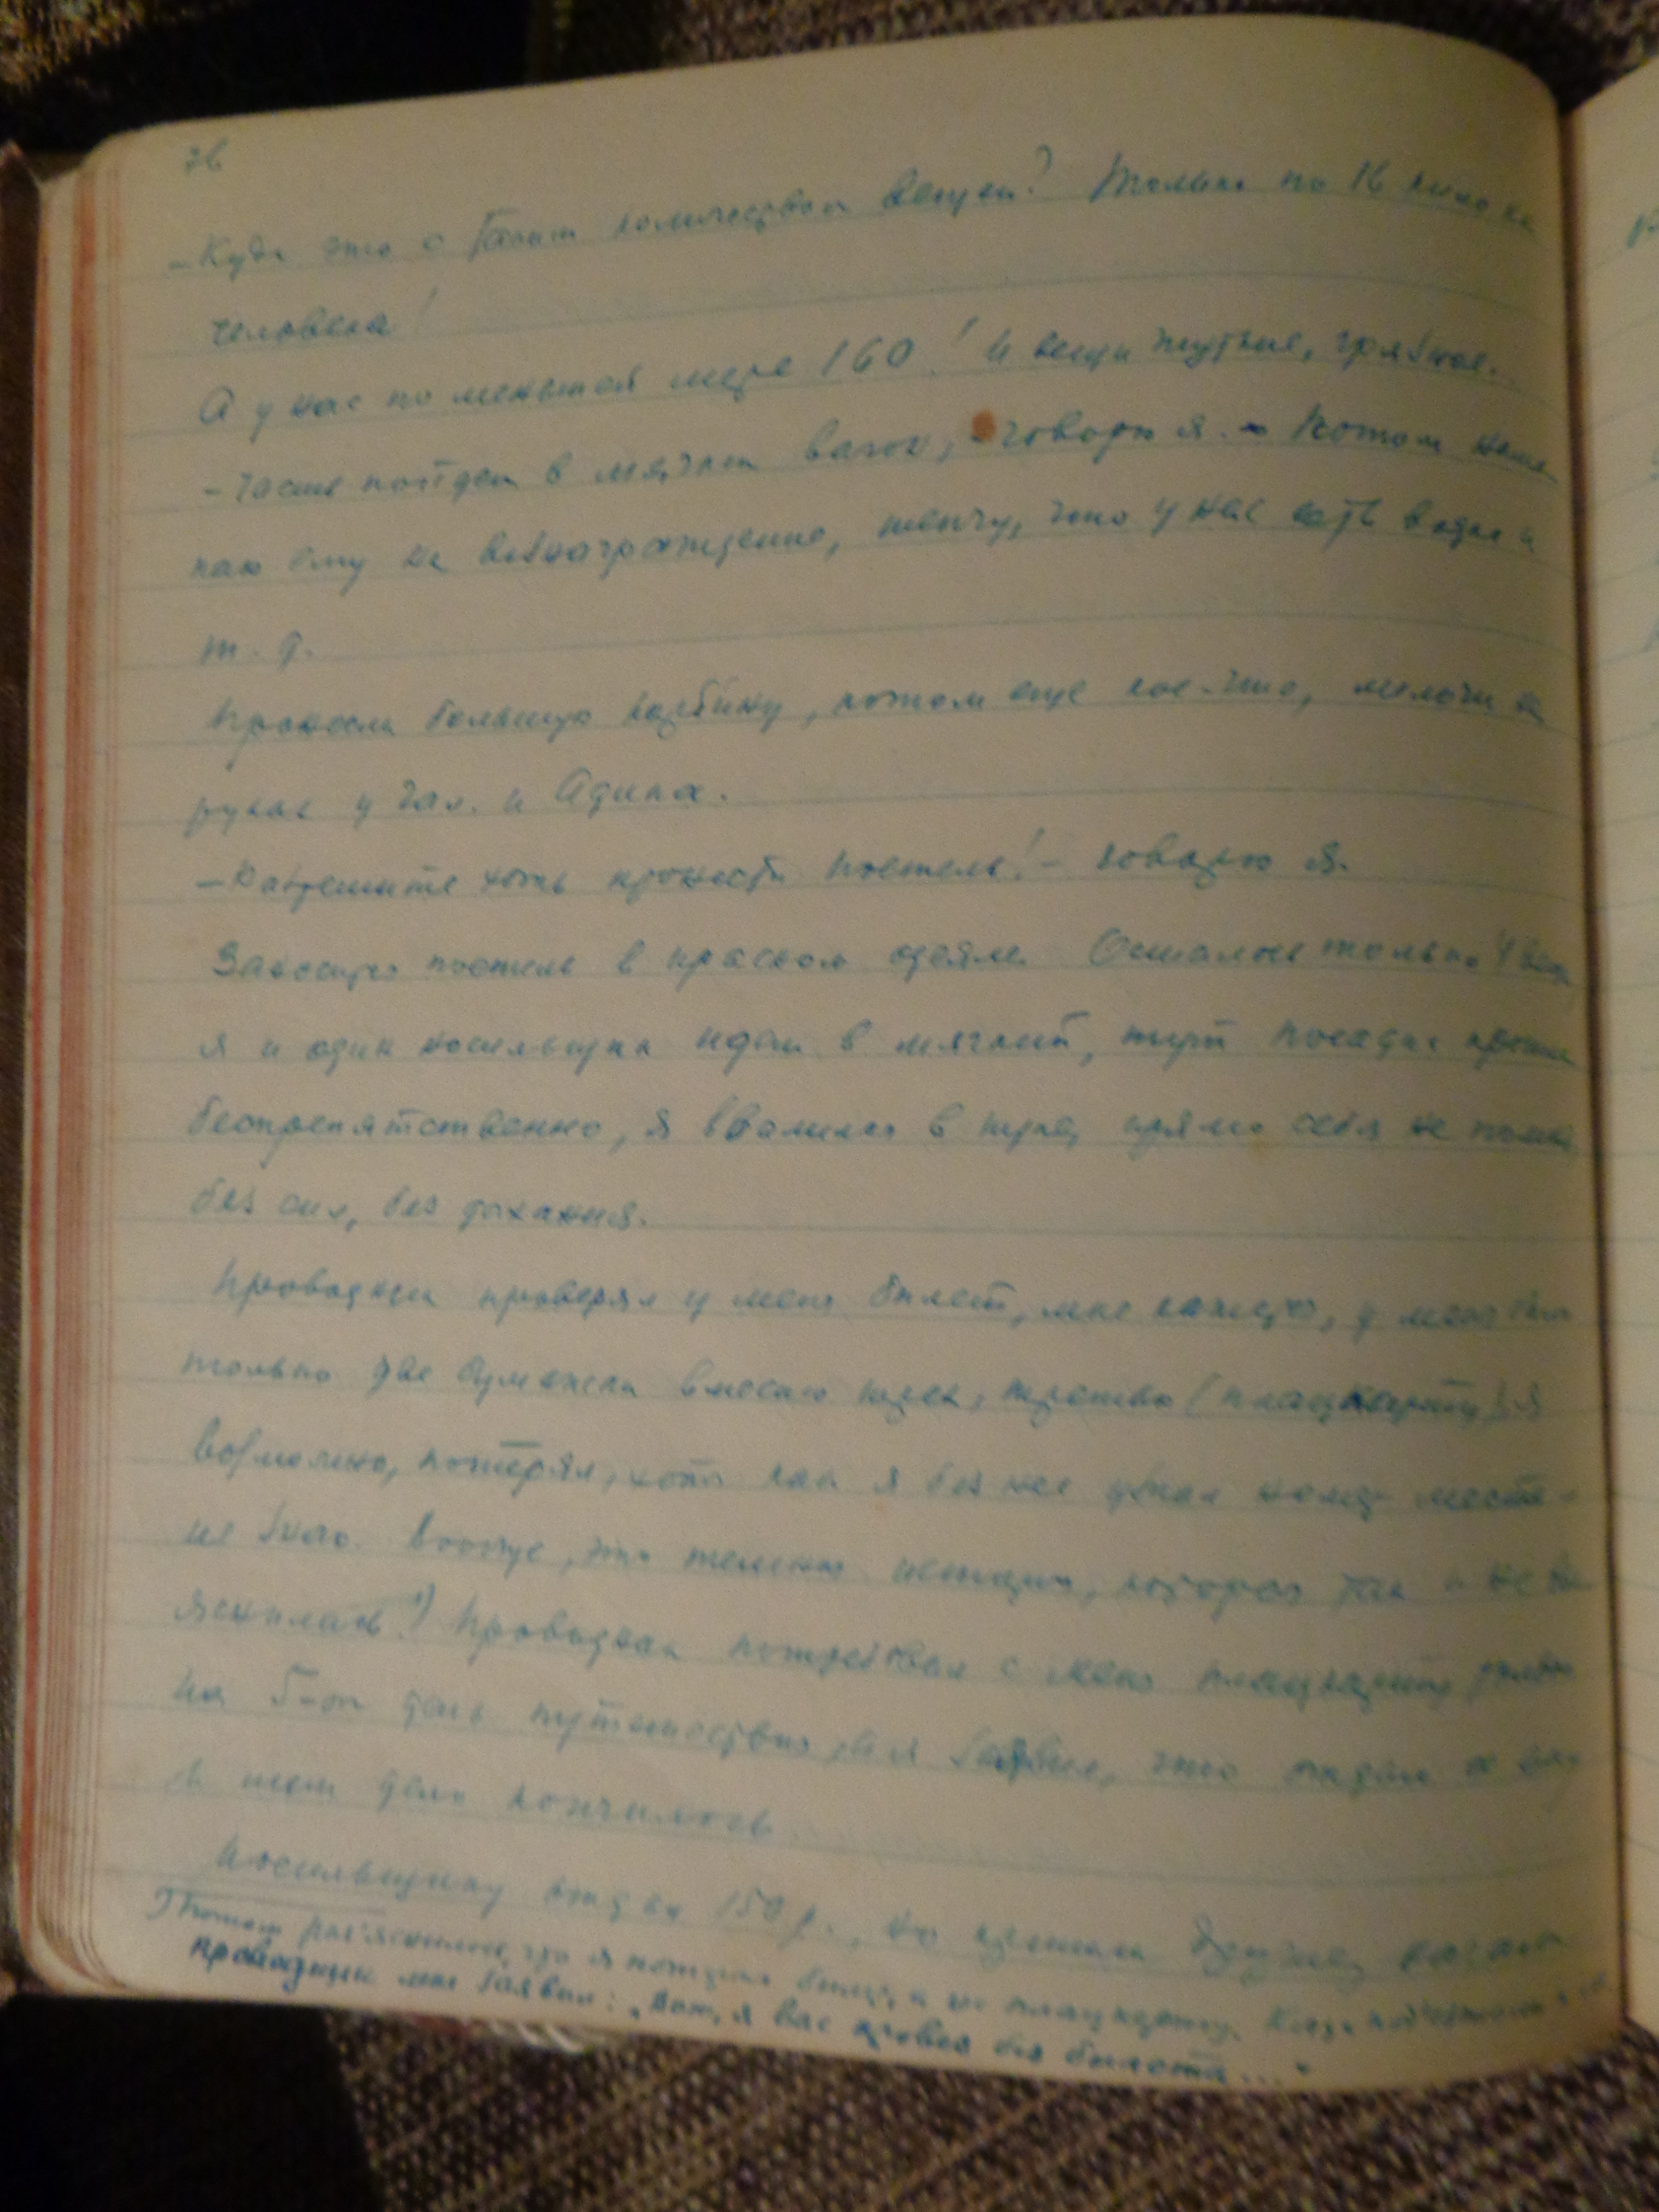 76
– Куда это с таким количеством вещей? Только по 16 кило на
человека!
А у нас по меньшей мере 160! И вещи жуткие, грязные.
– Часть пойдет в мягкий вагон, – говорю я. – Потом наме-
каю ему на вознаграждение, шепчу, что у нас есть водка и
т. д.
Пронесли большую корзину, потом еще кое-что, мелочи в
руках у Гал. и Адика.
– Разрешите хоть пронести постель! – говорю я.
Заносую постель в красном одеяле. Осталось только 4 вещи,
я и один носильщик идем в мягкий, тут посадка прошла
беспрепятственно, я ввалился в купе, прямо себя не помня,
без сил, без дыхания.
Проводник проверял у меня билет, мне кажется, у меня было
только две бумажки вместо трех, третью (плацкарту) я
возможно, потерял, хотя как я без нее узнал номер места –
не знаю. Вообще, это темная история, которая так и не вы-
яснилась.¹) Проводник потребовал с меня плацкарту только
на 5-ый день путешествия, я заявил, что отдал ее ему
и тем дело кончилось.
Носильщику отдал 150 р., но пришел другой,
¹) Потом раз'яснилось, что я потерял билет, а не плацкарту. Когда под'езжали
проводник мне заявил: „Вот, я вас провез без билета..."